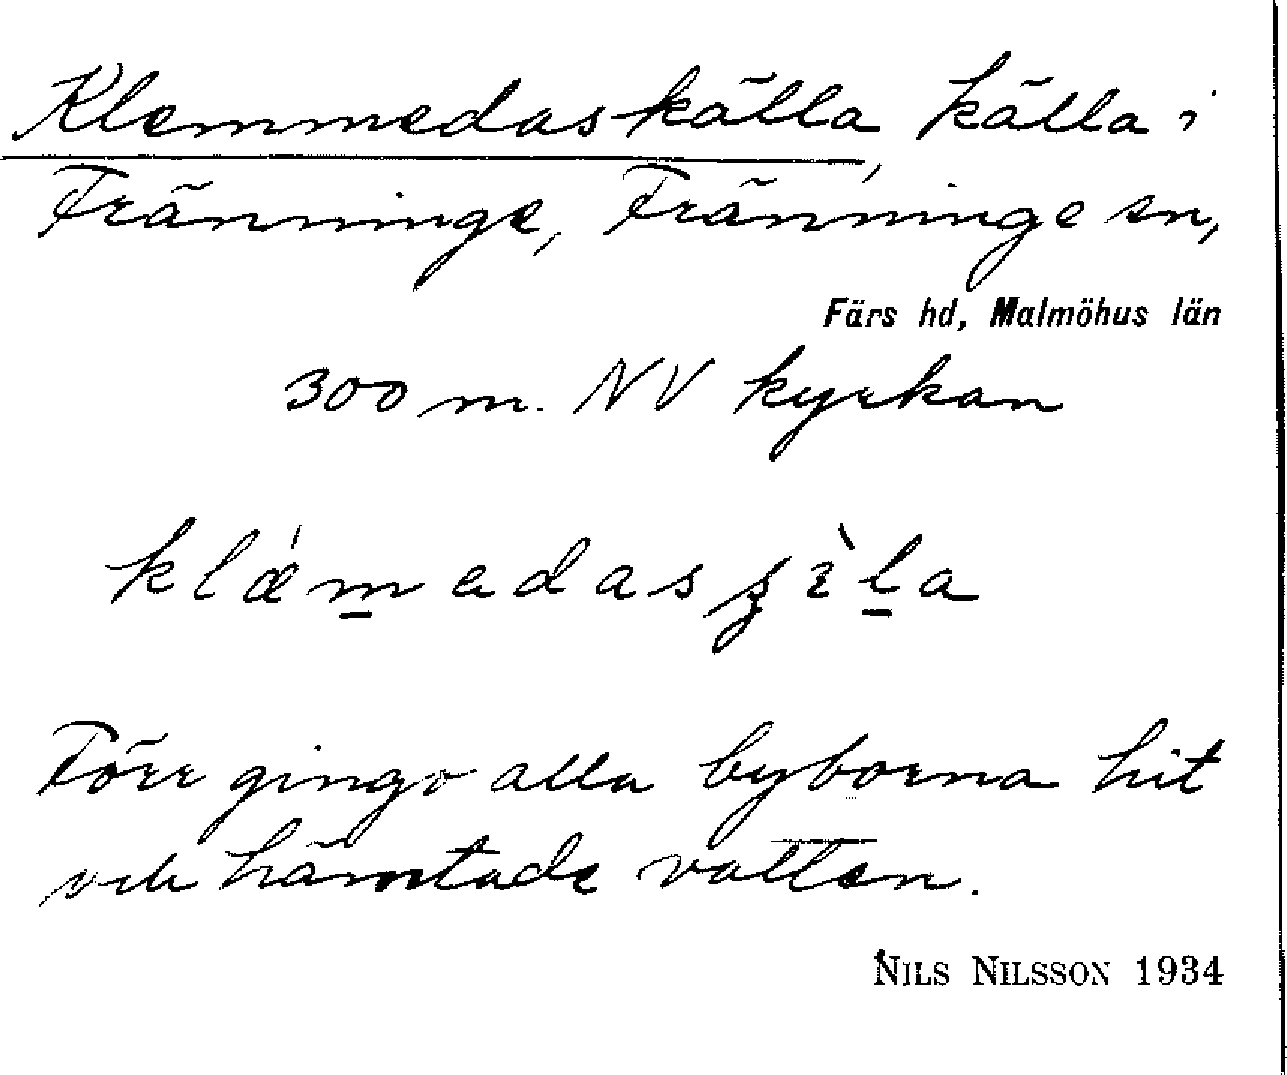 Klemmedaskälla, källa i
Fränninge, Fränninge sn,
Färs hd, Malmöhus län
300 m. NV kyrkan
Förr gingo alla byborna hit
och hämtade vatten.
NILS NILSSON 1934